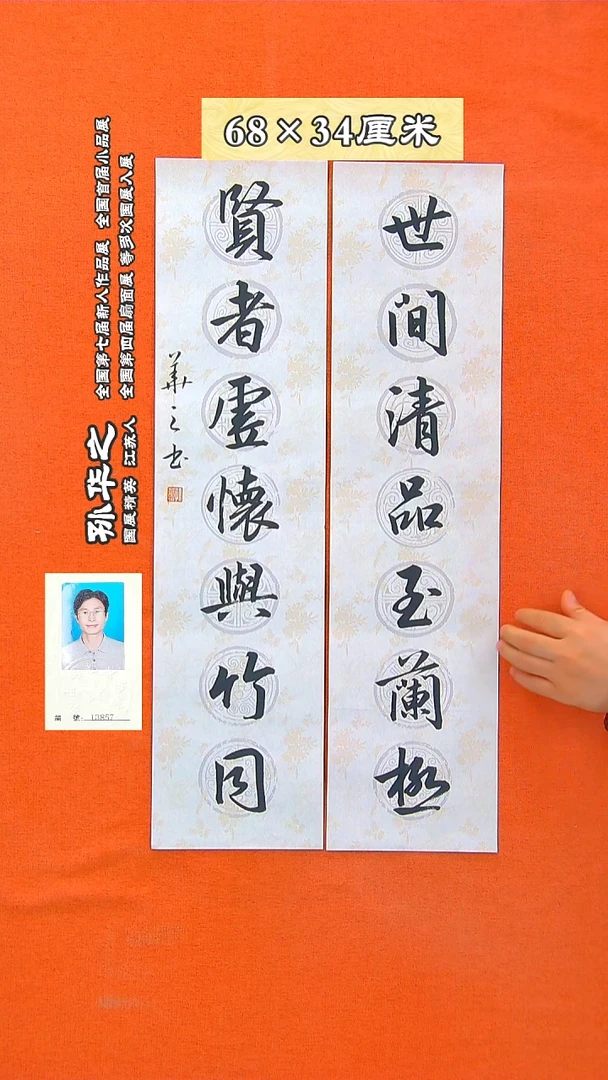 68×34厘米
世间清品至蘭極
賢者虚懷與竹同
華之书
孙华之
国展精英 江苏人
全国第七届新人作品展 全国首届小品展
全国第四届扇面展 等多次国展入展
编 號: 13857